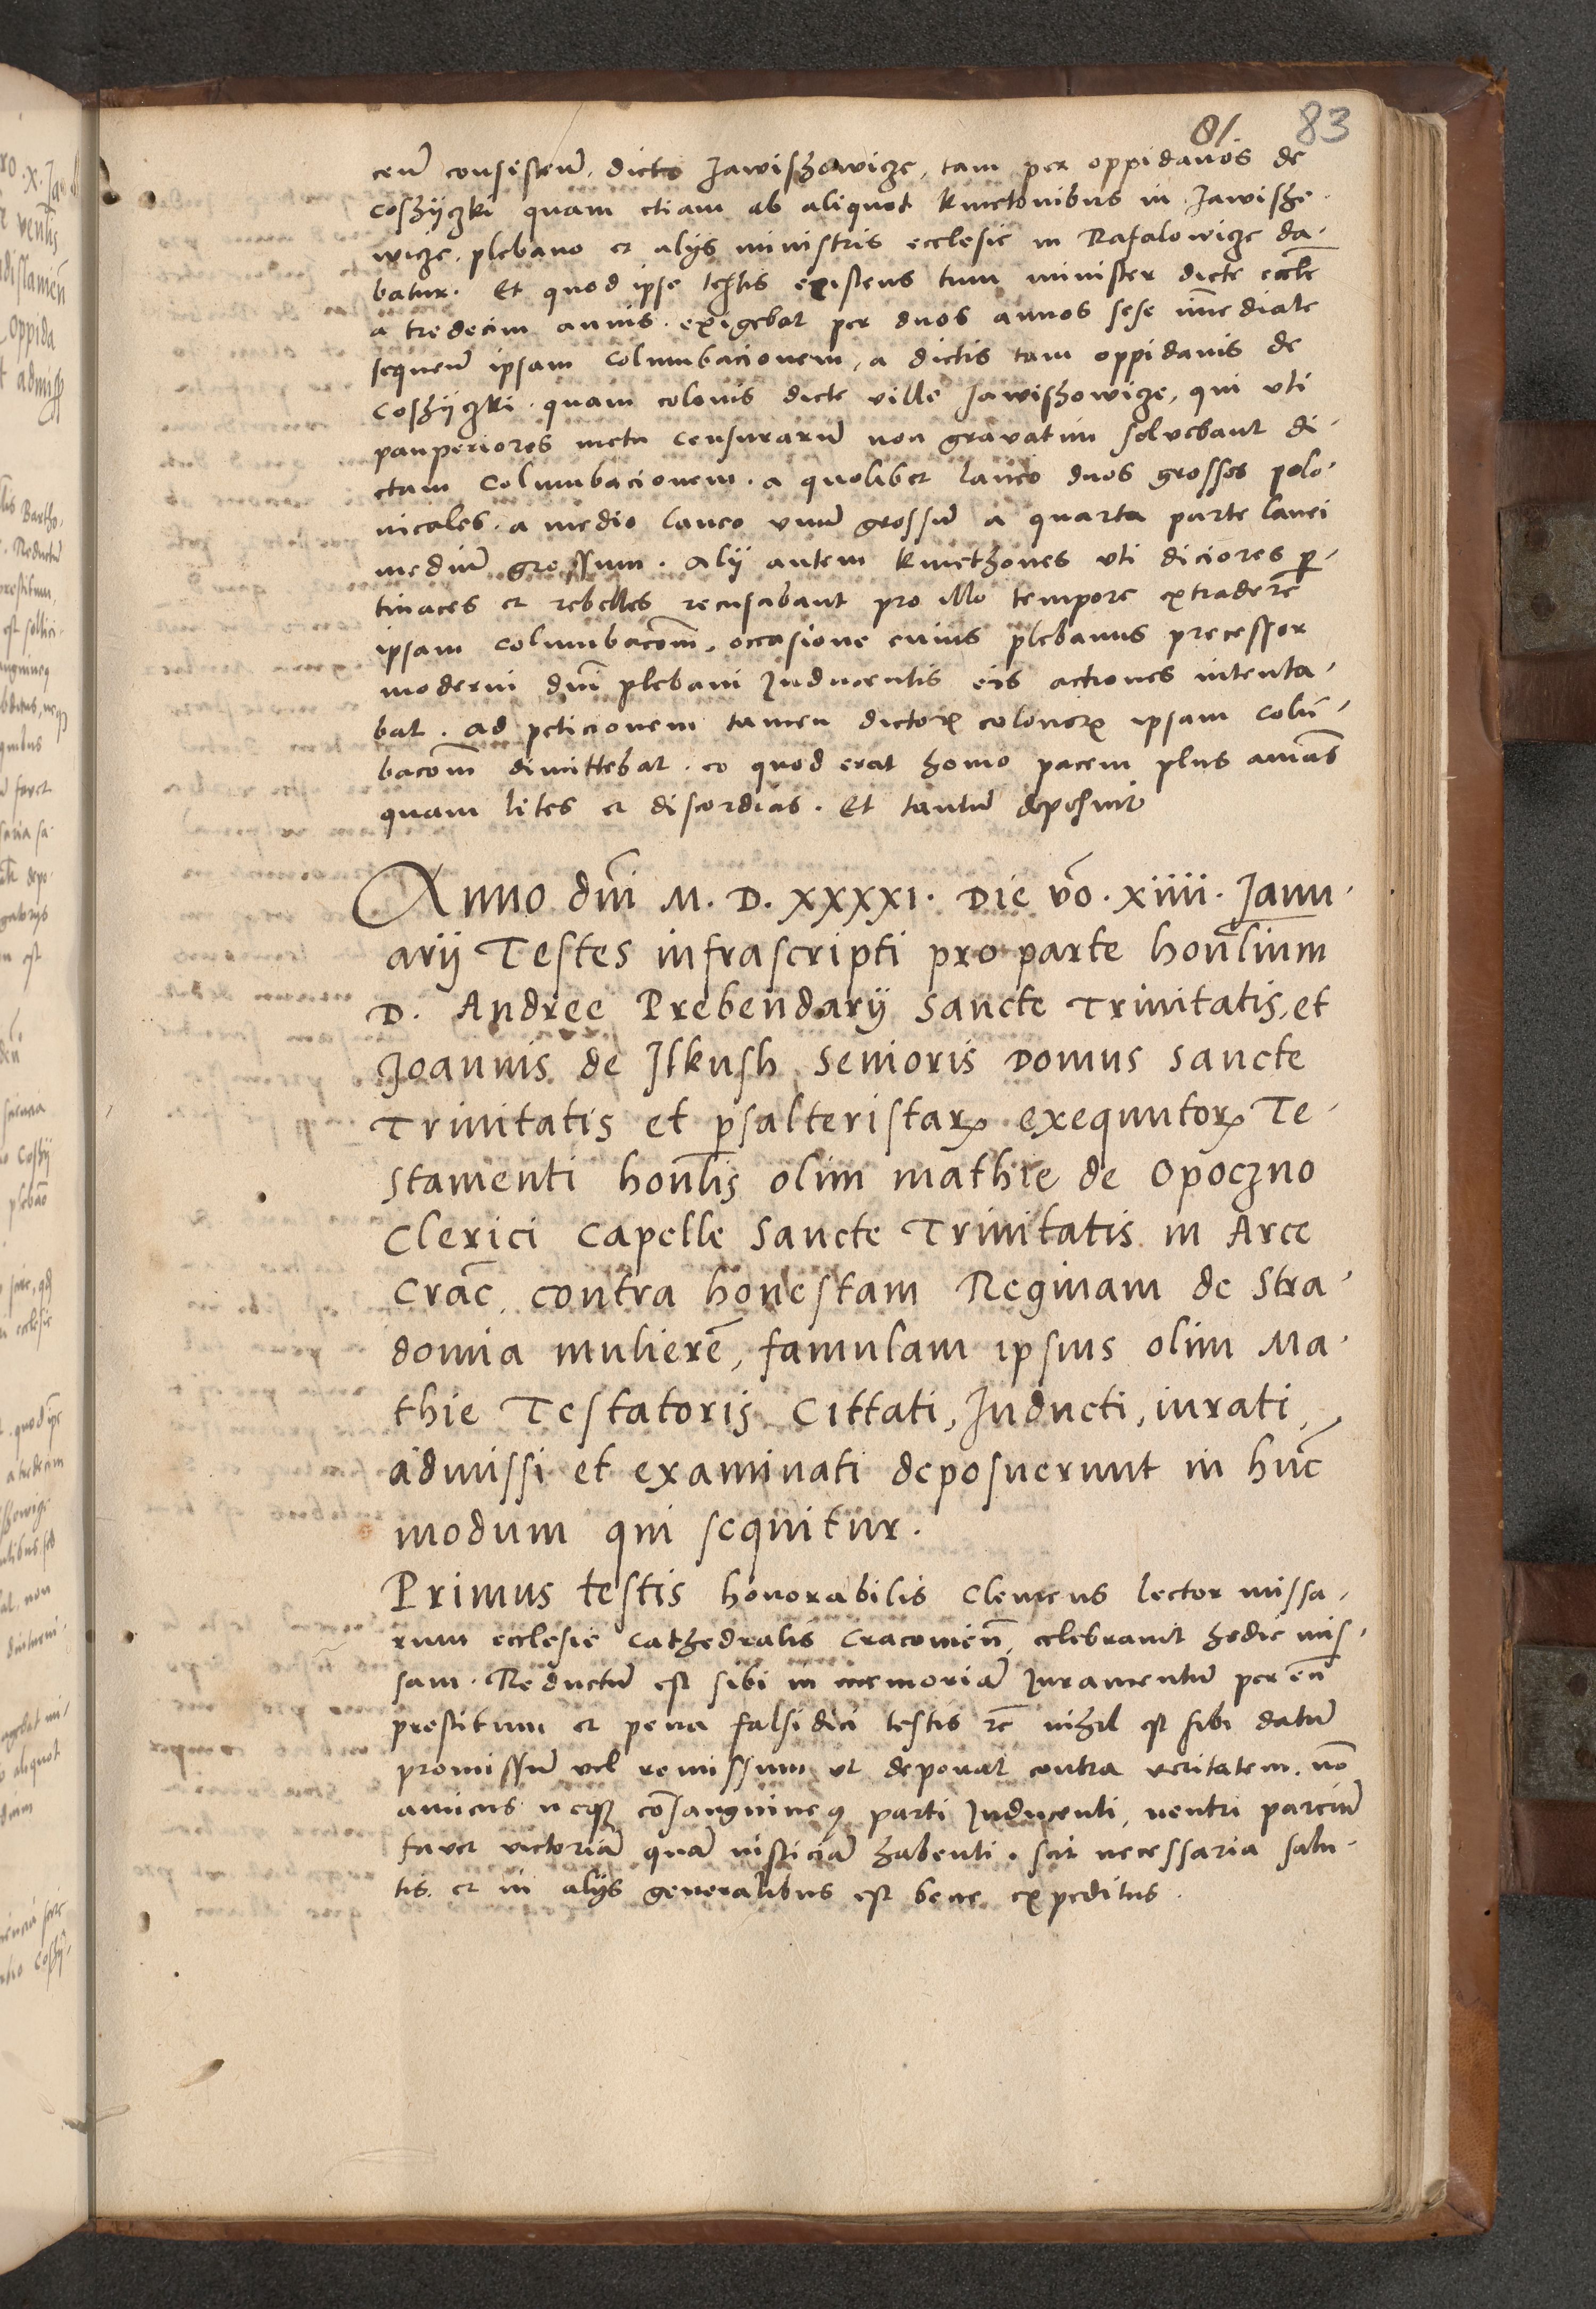 81. 83
ceñ consisteñ. dicto Jawishowicze, tam per oppidanos de
Coshyczki quam etiam ab aliquot kmethonibus in Jawisho-
wicze, plebano et alijs ministris ecclesie in Rafalowicze da-
batur. Et quod ipse testis existens tum minister dicte eccl̃e
a tredecim annis. exigebat per duos annos sese im̃ediate
sequeñ ipsam Columbacionem, a dictis tam oppidanis de
Coshyczki. quam colonis dicte ville Jawishowicze, qui vti
pauperiores metu censurarũ non gravatim solvebant di-
ctam Columbacionem. a quolibet laneo duos grossos polo-
nicales. a medio laneo vnũ grossũ a quarta parte lanei
mediũ grossum. Alij autem kmethones vti diciores ꝑ-
tinaces et rebelles recusabant pro illo tempore extraderẽ
ipsam columbacõm. occasione cuius plebanus precessor
moderni dñi plebani Inducentis eis actiones intenta-
bat. Ad peticionem tamen dictoꝝ colonoꝝ ipsam Colũ-
bacõm dimittebat. eo quod erat homo pacem plus amãs
quam lites et discordias. Et tantũ deposuit
Anno dñi M. D. XXXXI. Die vo. XIIII. Janu-
arij Testes infrascripti pro parte honl̃ium
D. Andree Prebendarij Sancte Trinitatis, et
Joannis de Ilkush Senioris Domus Sancte
Trinitatis et psalteristaꝝ exequutoꝝ Te-
stamenti honl̃is olim Mathie de Opoczno
Clerici Capelle Sancte Trinitatis in Arce
Crac̃. contra honestam Reginam de Stra-
domia mulierẽ, famulam ipsius olim Ma-
thie Testatoris Cittati, Inducti, iurati,
admissi et examinati deposuerunt in hũc
modum qui sequitur.
Primus testis honorabilis Clemens lector missa-
rum ecclesie Cathedralis Cracovieñ, celebravit hodie mis-
sam. Reductũ est sibi in memoriã Juramentũ per eũ
prestitum et pena falsidici testis rc̃ nihil est sibi datũ
promissũ vel remissum vt deponat contra veritatem. nõ
amicus neqꝫ cõsanguineꝰ parti Inducenti, neutri parciũ
favet victoriã quã iusticiã habenti. scit necessaria salu-
tis. et in alijs generalibus est bene expeditus.